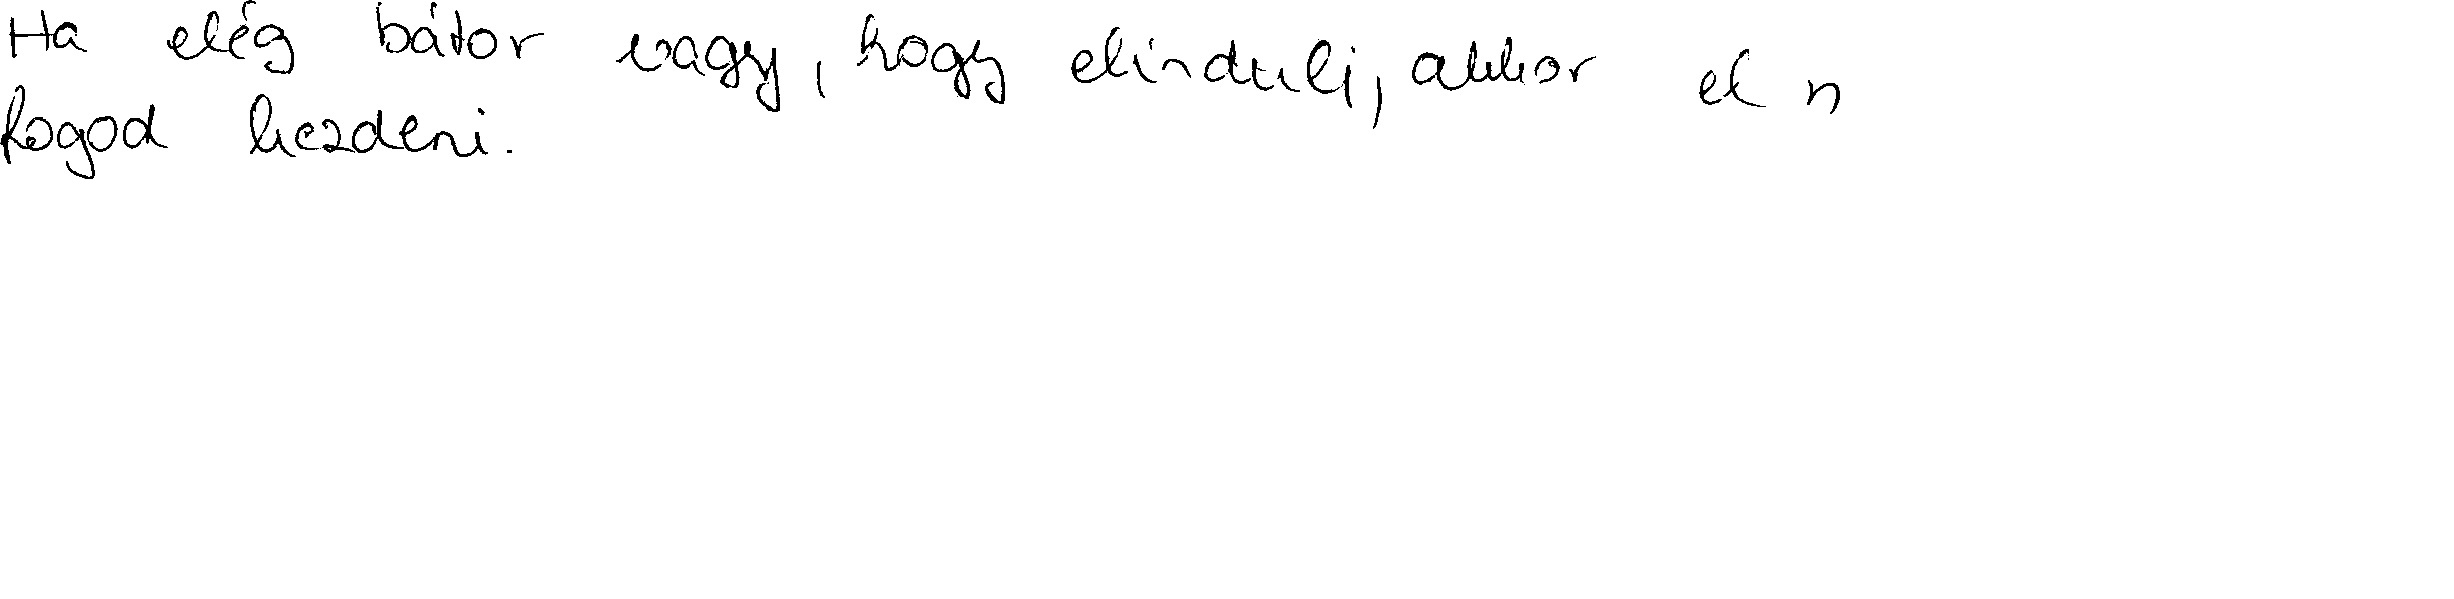 Ha elég bátor vagy, hogy elindulj, akkor el n
fogod kezdeni.